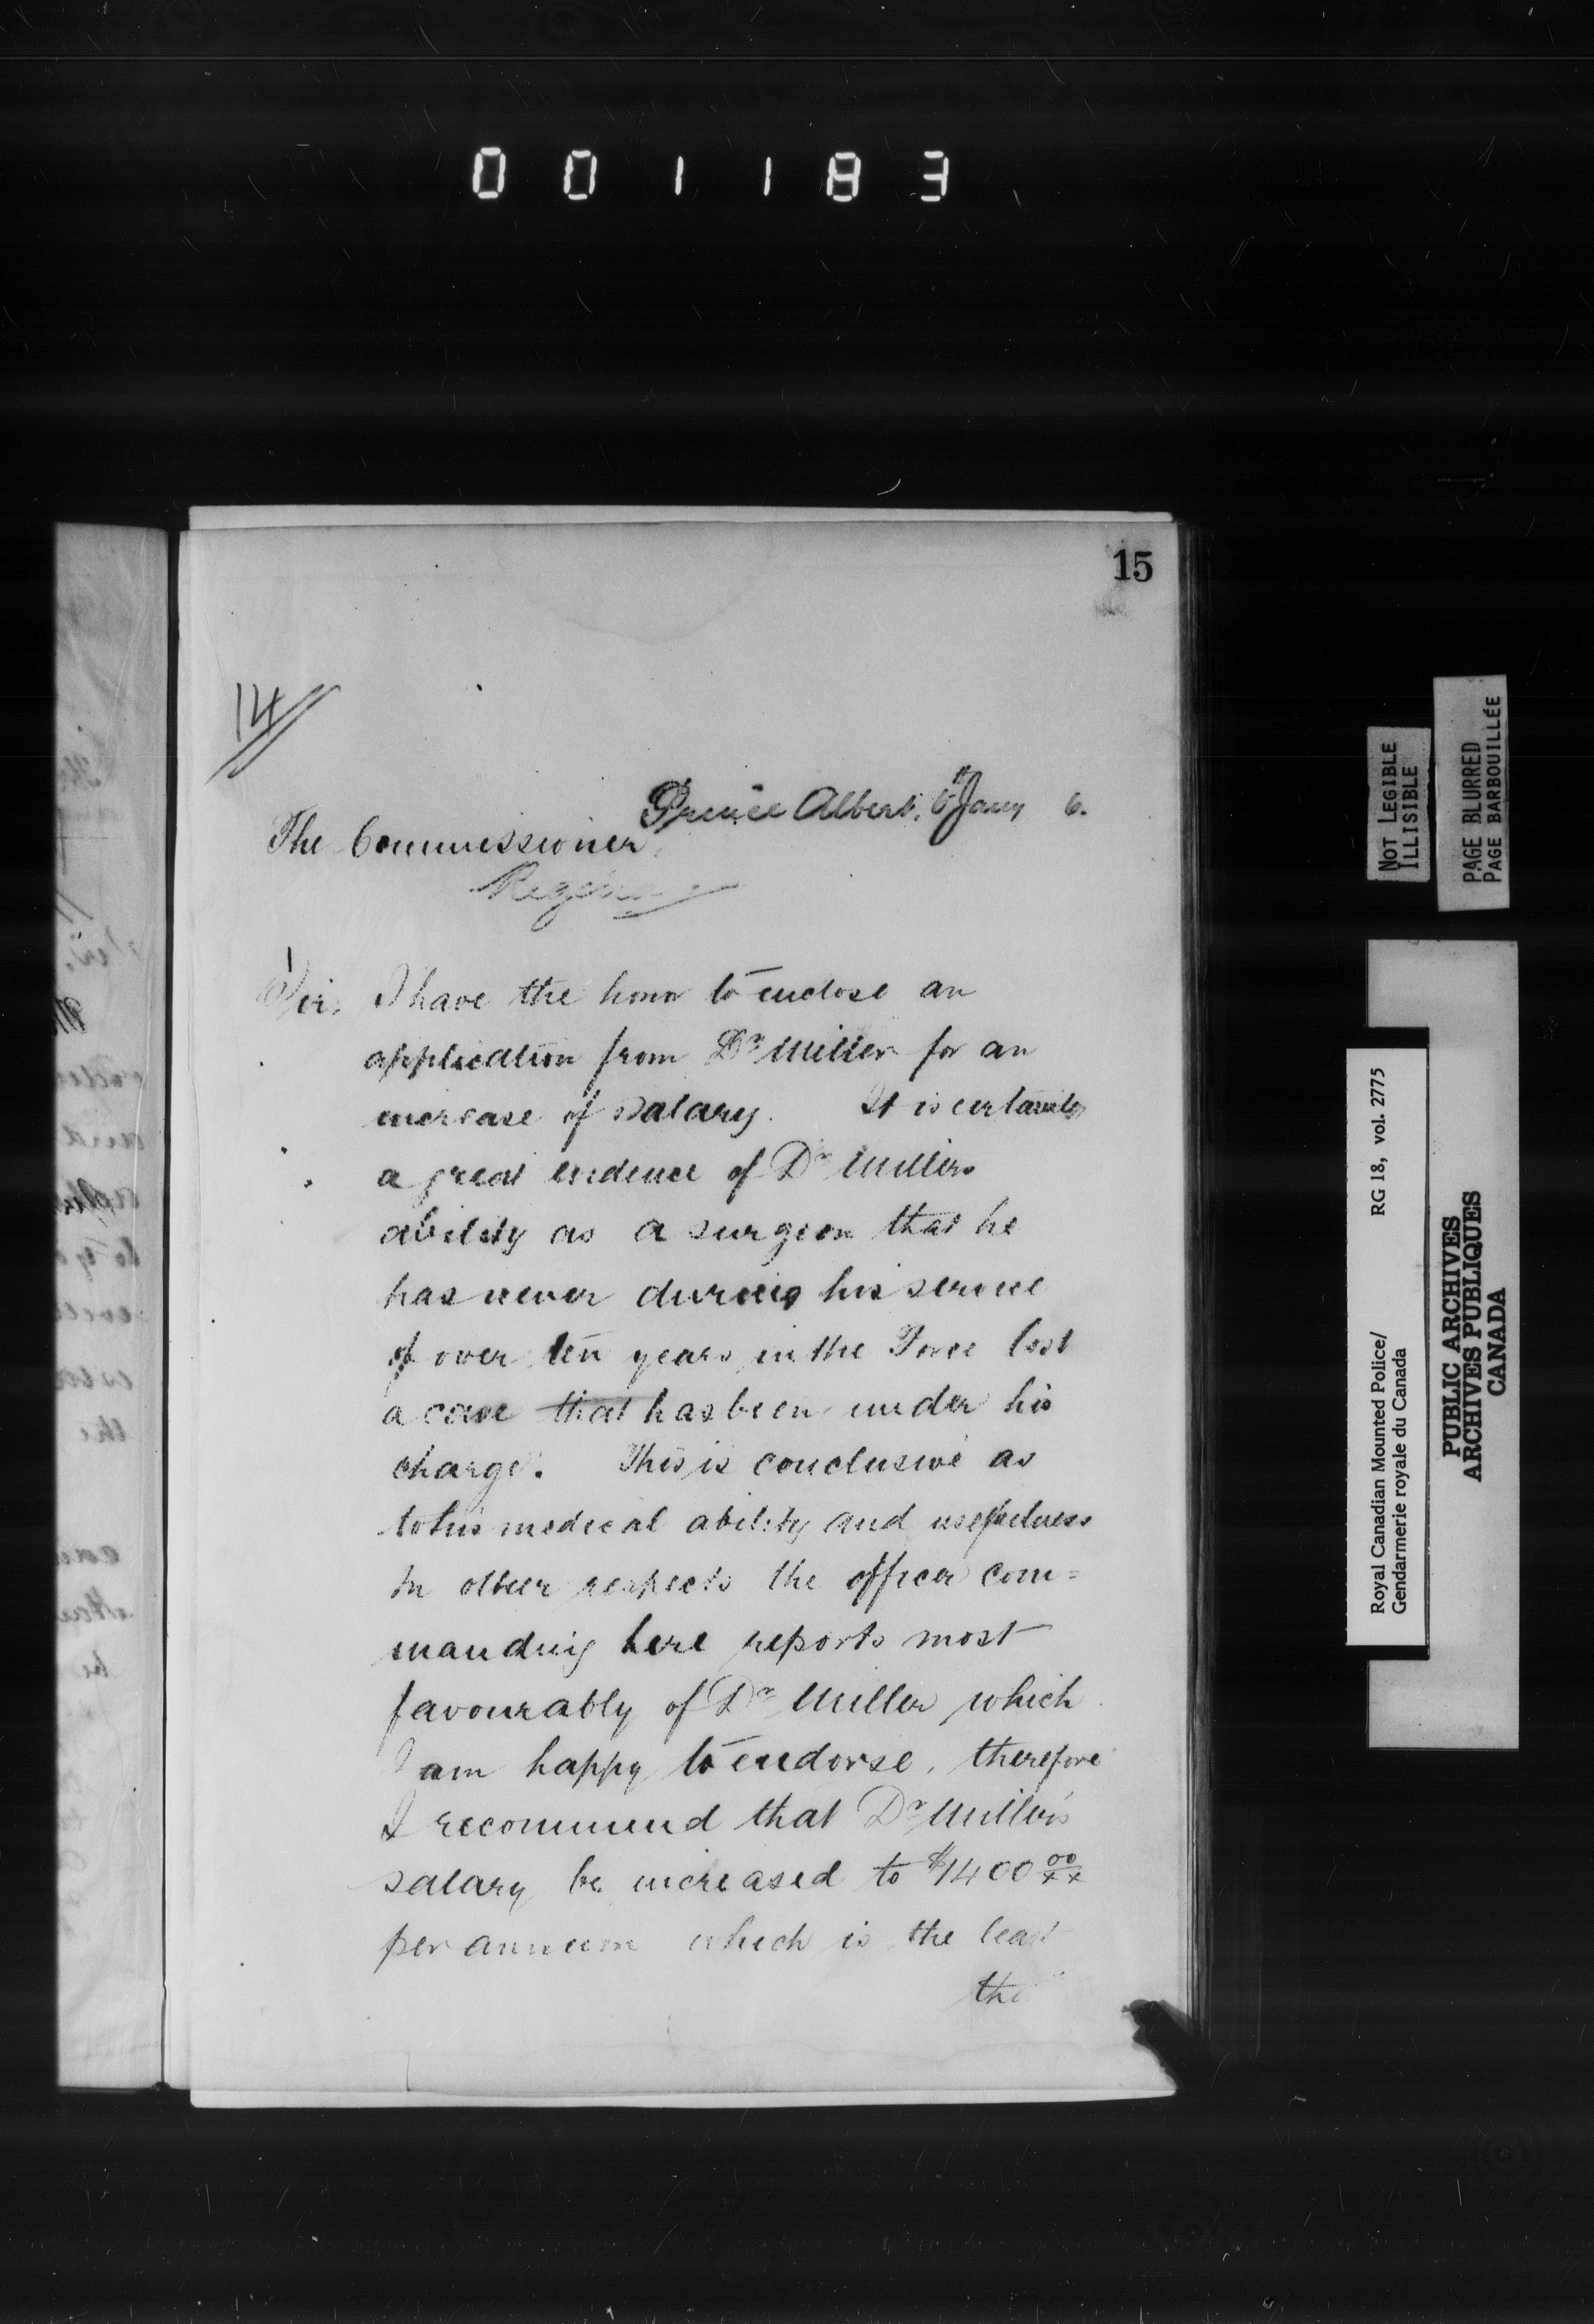 001183
15
14
Prince Albert, 6th Jany 6.
The Commissioner
Regina
Sir, I have the honor to enclose an
application from Dr Miller for an
increase of salary. It is certainly
a great evidence of Dr Millers
ability as a surgeon that he
has never during his service
of over ten years in the Force lost
a case that has been under his
charge. This is conclusive as
to his medical ability and usefulness
In other respects the officer com=
manding here reports most
favourably of Dr Miller which
I am happy to endorse, therefore
I recommend that Dr Miller's
salary be increased to $1400 00/xx
per annum which is the least
the
NOT LEGIBLE
ILLISIBLE
PAGE BLURRED
PAGE BARBOUILLÉE
Royal Canadian Mounted Police/
Gendarmerie royale du Canada
RG 18, vol. 2775
PUBLIC ARCHIVES
ARCHIVES PUBLIQUES
CANADA